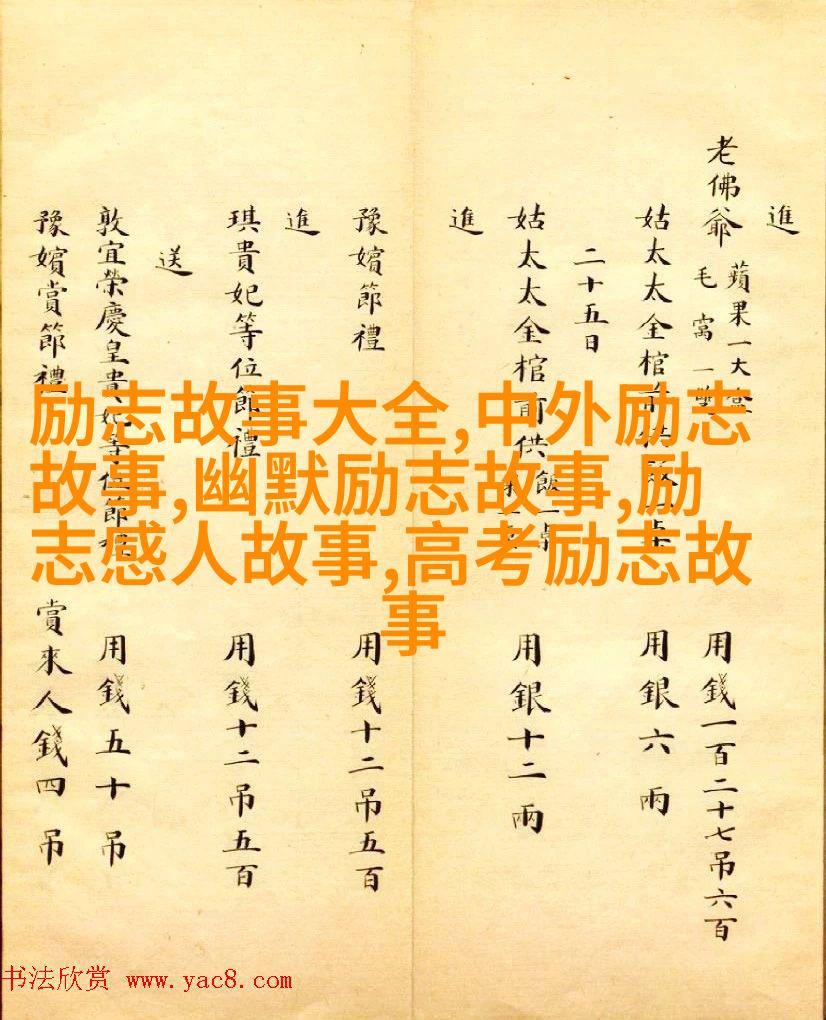 進
老佛爺 蘋果一大
毛窩一雙
用錢一百二十七吊六百
姑太太金棺前供飯一桌 用銀六兩
二十五日
姑太太金棺前供飯一桌 用銀十二兩
進
豫嬪節禮 用錢十二吊五百
進
琪貴妃等位節禮 用錢十二吊五百
送
敦宜榮慶皇貴妃等位節禮 用錢五十吊
豫嬪賞節禮 賞來人錢四吊
励志故事大全,中外励志
故事,幽默励志故事,励
志感人故事,高考励志故
事
书法欣赏 www.yac8.com